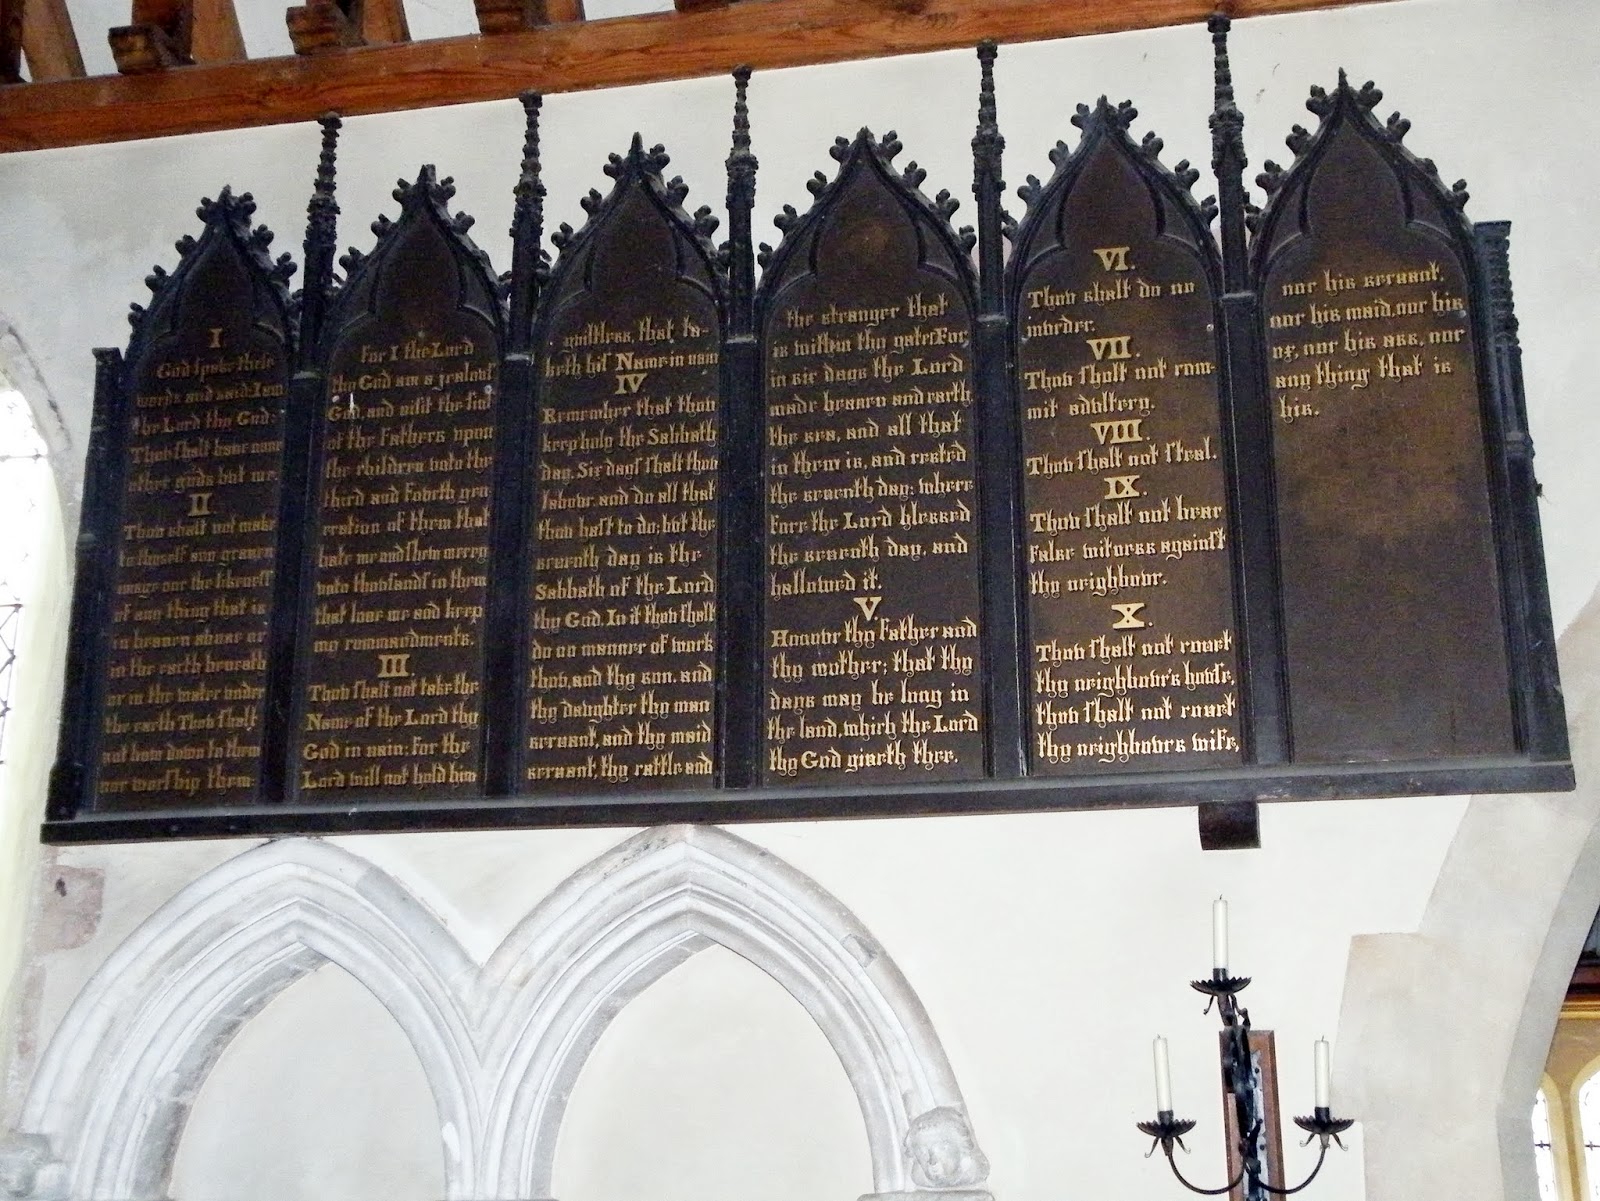 I
God spake these
words and said: I am
the Lord thy God:
Thou shalt have none
other gods but me.
II
Thou shalt not make
to thyself any graven
image nor the likeness
of any thing that is
in heaven above or
in the earth beneath
or in the water under
the earth Thou shalt
not bow down to them
nor worship them:
For I the Lord
thy God am a jealous
God, and visit the sins
of the Fathers upon
the children vnto the
third and Fovrth gen
eration of them that
hate me and shew mercy
vnto thovsands in them
that love me and keep
my commandments.
III.
Thov shalt not take the
Name of the Lord thy
God in vain: For the
Lord will not hold him
guiltless, that ta-
keth his Name in vain
IV
Remember that thov
keep holy the Sabbath
day. Six days shalt thov
labovr, and do all that
thov hast to do; bvt the
seventh day is the
Sabbath of the Lord
thy God. In it thov shalt
do no manner of work
thov, and thy son, and
thy davghter thy man
servant, and thy maid
servant, thy cattle and
the stranger that
is within thy gates For
in six days the Lord
made heaven and earth
the sea, and all that
in them is, and rested
the seventh day: where
Fore the Lord blessed
the seventh day, and
hallowed it.
V.
Honovr thy Father and
thy mother; that thy
days may be long in
the land, which the Lord
thy God giveth thee.
VI.
Thov shalt do no
mvrder.
VII.
Thov shalt not com-
mit advltery.
VIII.
Thov shalt not steal.
IX.
Thov shalt not bear
False witness against
thy neighbovr.
X.
Thov shalt not covet
thy neighbovr's hovse,
thov shalt not covet
thy neighbovrs wiFe,
nor his servant,
nor his maid, nor his
ox, nor his ass, nor
any thing that is
his.